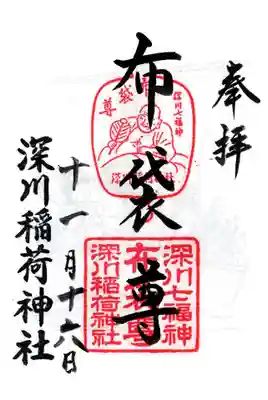 奉拝
深川七福神
布袋尊
布袋尊
深川七福神
布袋尊
深川稲荷神社
十一月十六日
深川稲荷神社